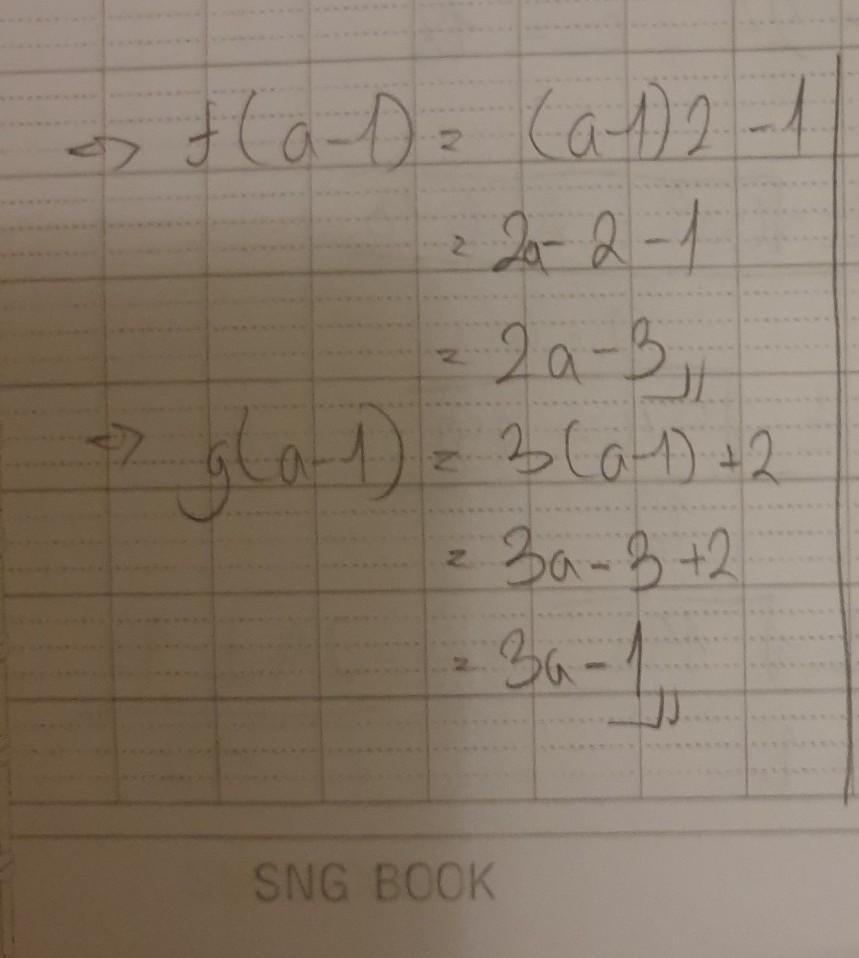 ⇒ f(a-1) = (a-1)2 -1
= 2a - 2 - 1
= 2a - 3,,
⇒ g(a-1) = 3(a-1) +2
= 3a - 3 +2
= 3a - 1,,
SNG BOOK